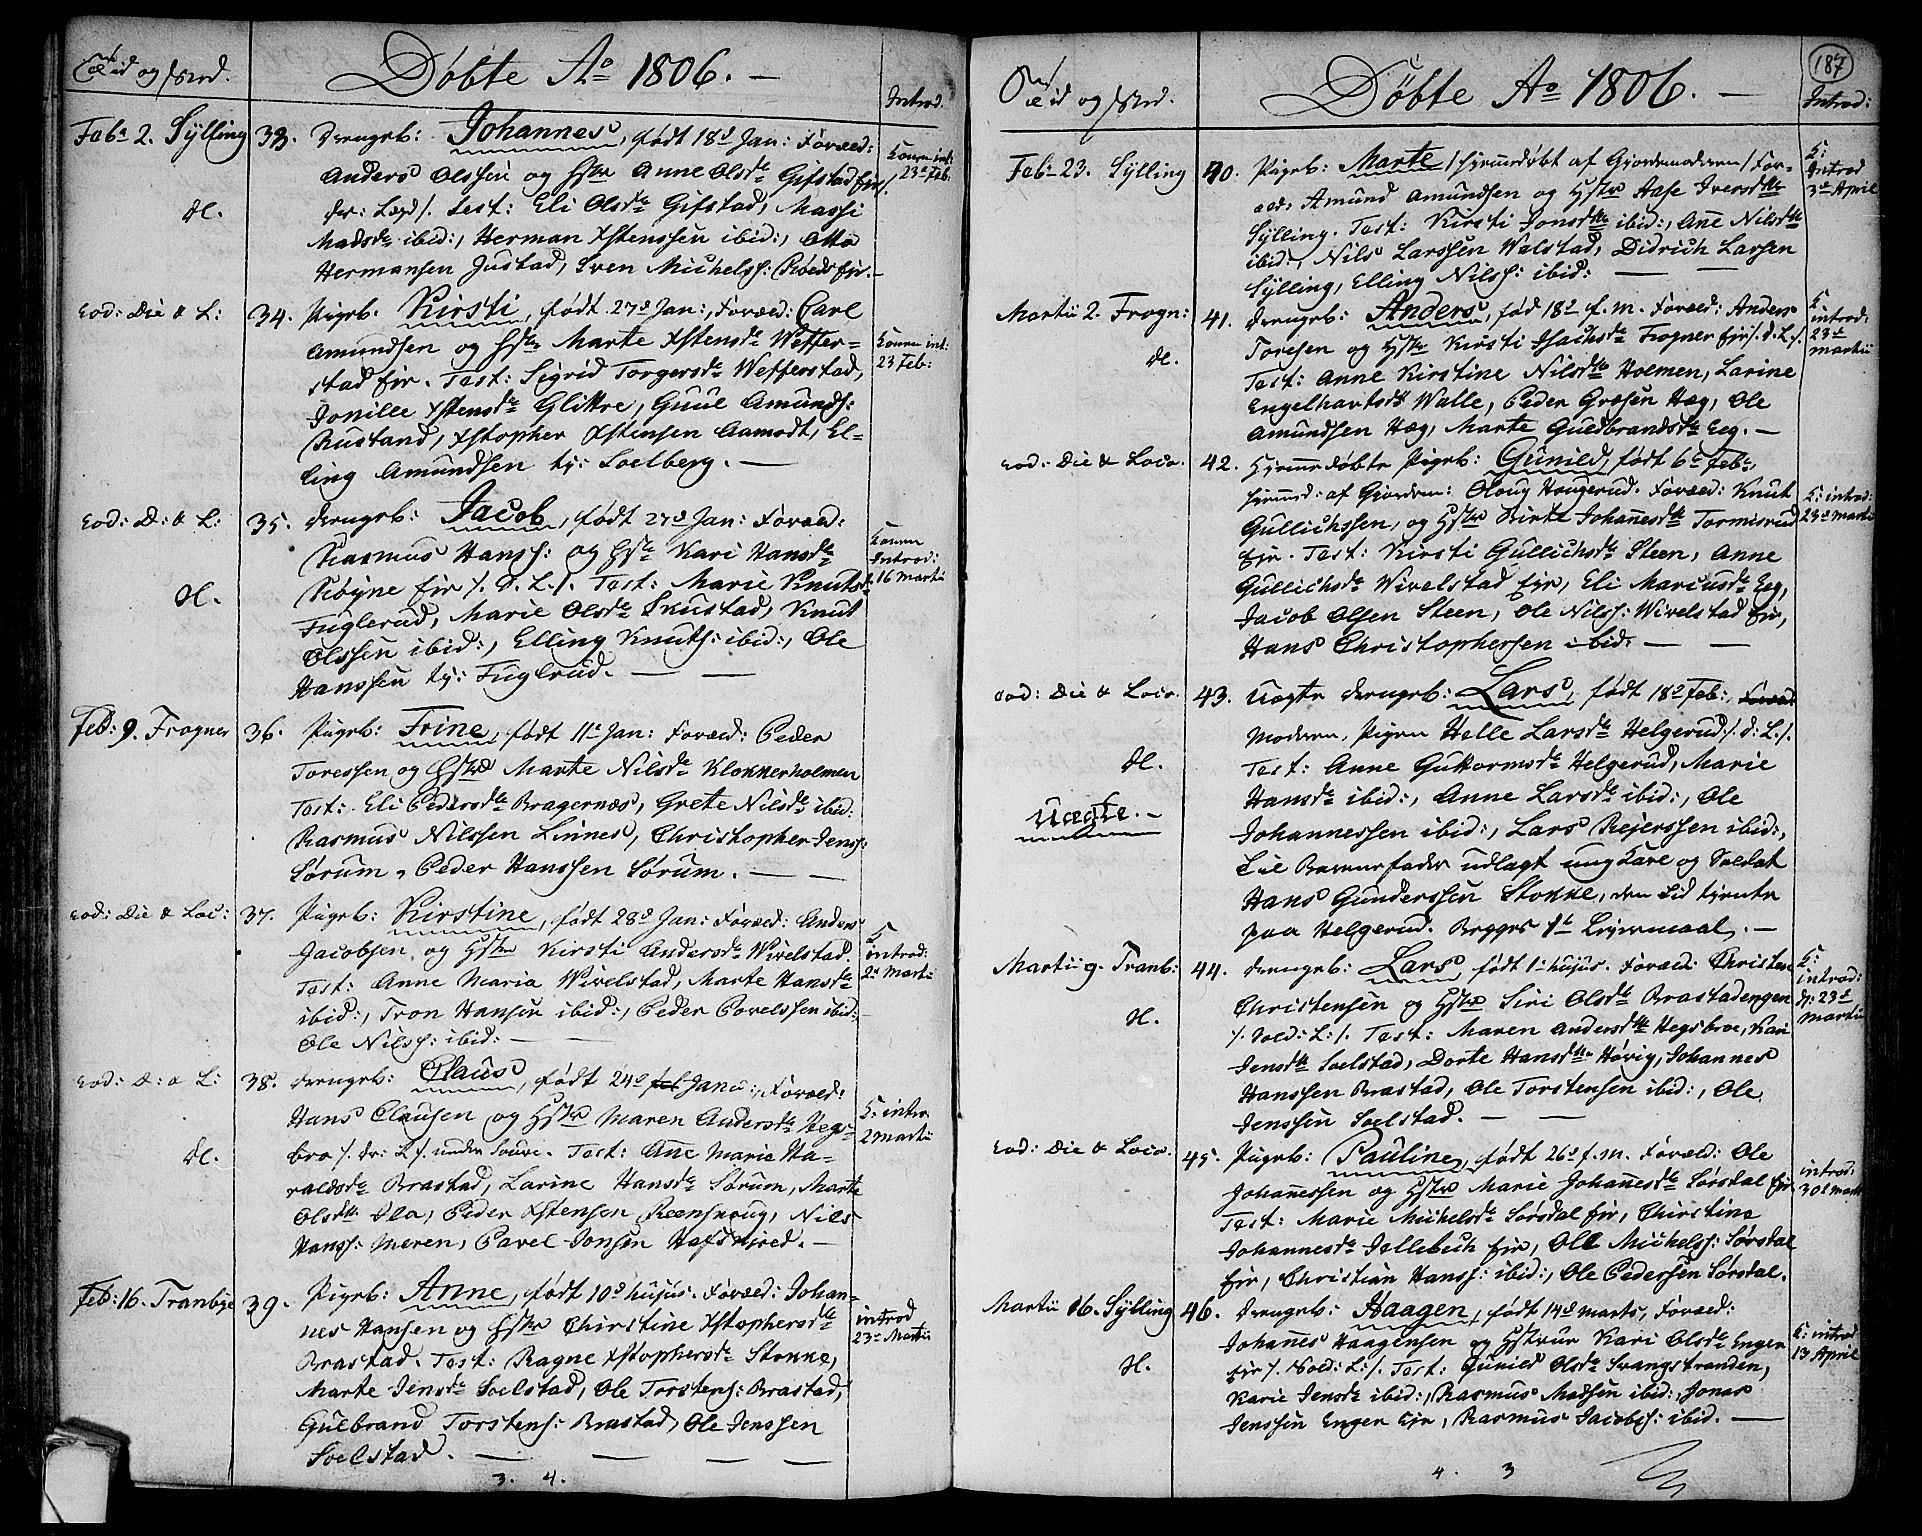 Tid og Sted.
Døbte Ao 1806. —
Introd.
Feb: 2. Sylling
33. Drengeb: Johannes, født 18d Jan: Foræld:
Anders Olssen og Hstr Anne Olsdr Gifstad Eje
Test: Eli Olsdr Gifstad, Massi
Madsdr ibid:, Herman Xstenssen ibid:, Otto
Hermansen Justad, Sven Michels: Røeds Eje. —
dl.
Konen int:
23d Feb:
eod: Die & L:
34. Pigeb: Kirsti, født 27d Jan:, Foræld: Carl
Amundsen og Hstr Marte Xstensdr Weffer=
stad Eje. Test: Sigrid Torgersdr Wefferstad,
Jonille Xstensdr Glittre, Guul Amunds:
Rustand, Xstopher Xstensen Aamodt, El=
ling Amundsen tj: Soelberg. —
Konen int:
23 Feb:
eod: D: & L:
35. Drengeb: Jacob, født 27d Jan: Foræld:
Rasmus Hanss: og Hstr Kari Hansdr
Røyne Eje /. d. L./. Test: Marie Knutsdr
Fuglerud, Marie Olsdr Skustad, Knut
Olssen ibid:, Elling Knuts: ibid:, Ole
Hanssen tj: Fuglrud. — —
dl.
Konen
Introd:
16 Martii
Feb: 9. Frogner
36. Pigeb: Trine, født 11d Jan: Foræld: Peder
Toressen og Hstr Marte Nilsdr Klokkerholmen
Test: Eli Pedersdr Bragernæs, Grete Nilsdr ibid:
Rasmus Nilssen Linnes, Christopher Jenss:
Sørum, Peder Hanssen Sørum. — —
eod: Die & Loc:
37. Pigeb: Kirstine, født 28d Jan: Foræld: Anders
Jacobsen, og Hstr Kirsti Andersdr Wivelstad.
Test: Anne Maria Wivelstad, Marte Hansdr
ibid:, Tron Hansen ibid:, Peder Povelssen ibid:
Ole Nilss: ibid: — —
K.
introd:
2d Martii
eod: D: & L:
38. Drengeb: Claus, født 24d Janu:, Foræld:
Hans Clausen og Hstr Maren Andersdr Hegs=
bro /. dr: L/. Test: Anne Marie Ha=
raldsdr Brastad, Larine Hansdr Sørum, Marte
Olsdtr Ila, Peder Xstensen Reenskoug, Nils
Hanss: Meren, Pavel Jonsen Hafsnjred. —
dl.
K. intro.
2 Martii
Feb: 16. Tranbye
39. Pigeb: Anne, født 10d hujus. Foræld: Johan=
nes Hansen og Hstr Christine Xstophersdr
Brastad. Test: Ragne Xstophersdr Stokke,
Marte Jensdr Soelstad, Ole Torstens: Brastad,
Gulbrand Torstens: Brastad, Ole Jenssen
Soelstad. — — — —
introd
23d Martii
3. 4.
187
Tid og Sted.
Døbte Ao 1806. —
Introd:
Feb: 23. Sylling
40. Pigeb: Marte /hjemmedøbt af Gjordemoderen/ For=
æld: Amund Amundsen og Hstr Aase Iversdtr
Sylling. Test: Kirsti Jonsdtr ibid:, Ane Nilsdtr
ibid:, Nils Larssen Walstad, Didrich Larsen
Sylling, Elling Nilss: ibid: — —
K:
Introd
3d April
Martii 2. Frogn:
41. Drengeb: Anders, fød 18d f. m. Foræld: Anders
Toresen og Hstr Kirsti Isachsdr Frogner Eje /. d. L/.
Test: Anne Kirstine Nilsdtr Holmen, Larine
Engelhartsdr Walle, Peder Gresen Hæg, Ole
Amundsen Hæg, Marte Guldbrandsdr Eeg. —
dl.
K.
introd:
23d
Martii
eod: Die & Loco.
42. Hjemmedøbte Pigeb: Gunild, født 6d Feb:,
hjemmed: af Gjordem: Oloug Haugerud. Foræld: Knut
Gullichssen, og Hstr Birte Johanesdtr Tormisrud
Eje. Test: Kirsti Gullichsdr Steen, Anne
Gullichsdr Wivelstad Eje, Eli Mariusdr Eeg,
Jacob Olsen Steen, Ole Nilss: Wivelstad Eje,
Hans Christophersen ibid: — —
K: introd:
23d Martii
eod: Die & Loco.
43. Uægte Drengeb: Lars, født 18d Feb:,
Moderen, Pigen Helle Larsdr Helgerud /. d: L/.
Test: Anne Guttormsdr Helgerud, Marie
Hansdr ibid:, Anne Larsdr ibid:, Ole
Johannessen ibid:, Lars Rejerssen ibid:,
Til Barnefader udlagt ung Karl og Soldat
Hans Gunderssen Stokke, den Tid tjente
paa Helgerud. Begges 1te Lejermaal. —
dl.
Uægte. —
Martii 9. Tranb:
44. Drengeb: Lars, født 1d hujus. Foræld: Christen
Christensen og Hstr Siri Olsdr Brastadengen
/. Sold: L:/. Test: Maren Andersdtr Hegsbroe, Kari
Jensdtr Soelstad, Dorte Hansdtr Høvig, Johannes
Hanssen Brastad, Ole Torstensen ibid:, Ole
Jenssen Soelstad. — —
dl.
K:
introd:
d: 23d
Martii
eod: Die & Loco.
45. Pigeb: Pauline, født 26d f. m. Foræld: Ole
Johanessen og Hstr Marie Johanesdr Sørsdal Eje
Test: Marie Michelsdr Sørsdal Eje, Christine
Johannesdr Jellebech Eje, Ole Michelss: Sørsdal
Eje, Christian Hanss: ibid:, Ole Pederssen Sørsdal.
introd:
30d Martii
Martii 16. Sylling
46. Drengeb: Haagen, født 14d Marts, Foræld:
Johanes Haagensen og Hstrue Kari Olsdr Enger
Eje /. Nold: L:/. Test: Gunild Olsdr Svangstranden,
Karie Jensdr ibid:, Rasmus Madsen ibid:, Jonas
Jenssen Enger Eje, Rasmus Jacobss: ibid. —
dl.
K: introd
13 April
4. 3